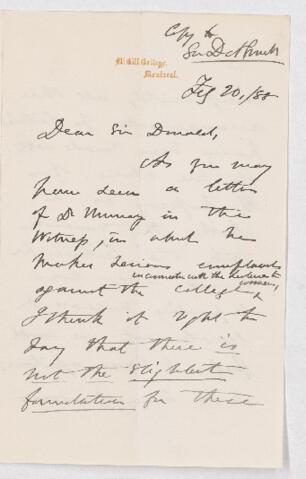 Copy to
Sir D A Smith
McGill College.
Montreal.
Feb 20/88
Dear Sir Donald,
As you may
have seen a letter
of Dr Murray in the
Witness, in which he
makes serious complaints
in connection with the
against the college,
I think it right to
say that there is
not the slightest
foundation for these